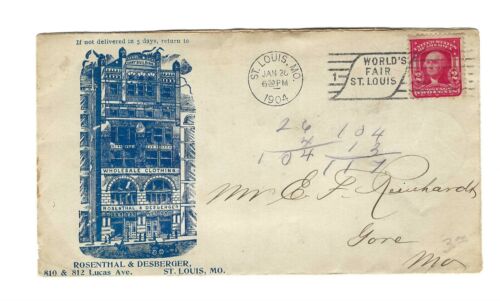 If not delivered in 5 days, return to
WHOLESALE CLOTHING
ROSENTHAL & DESBERGER
ROSENTHAL & DESBERGER,
810 & 812 Lucas Ave. ST. LOUIS, MO.
ST. LOUIS, MO.
JAN 26
6 PM
1904
1
WORLD'S
FAIR
ST. LOUIS
2 2
26 104
4 13
104 117
Mr E. F. Reinhardt
Gore
Mo